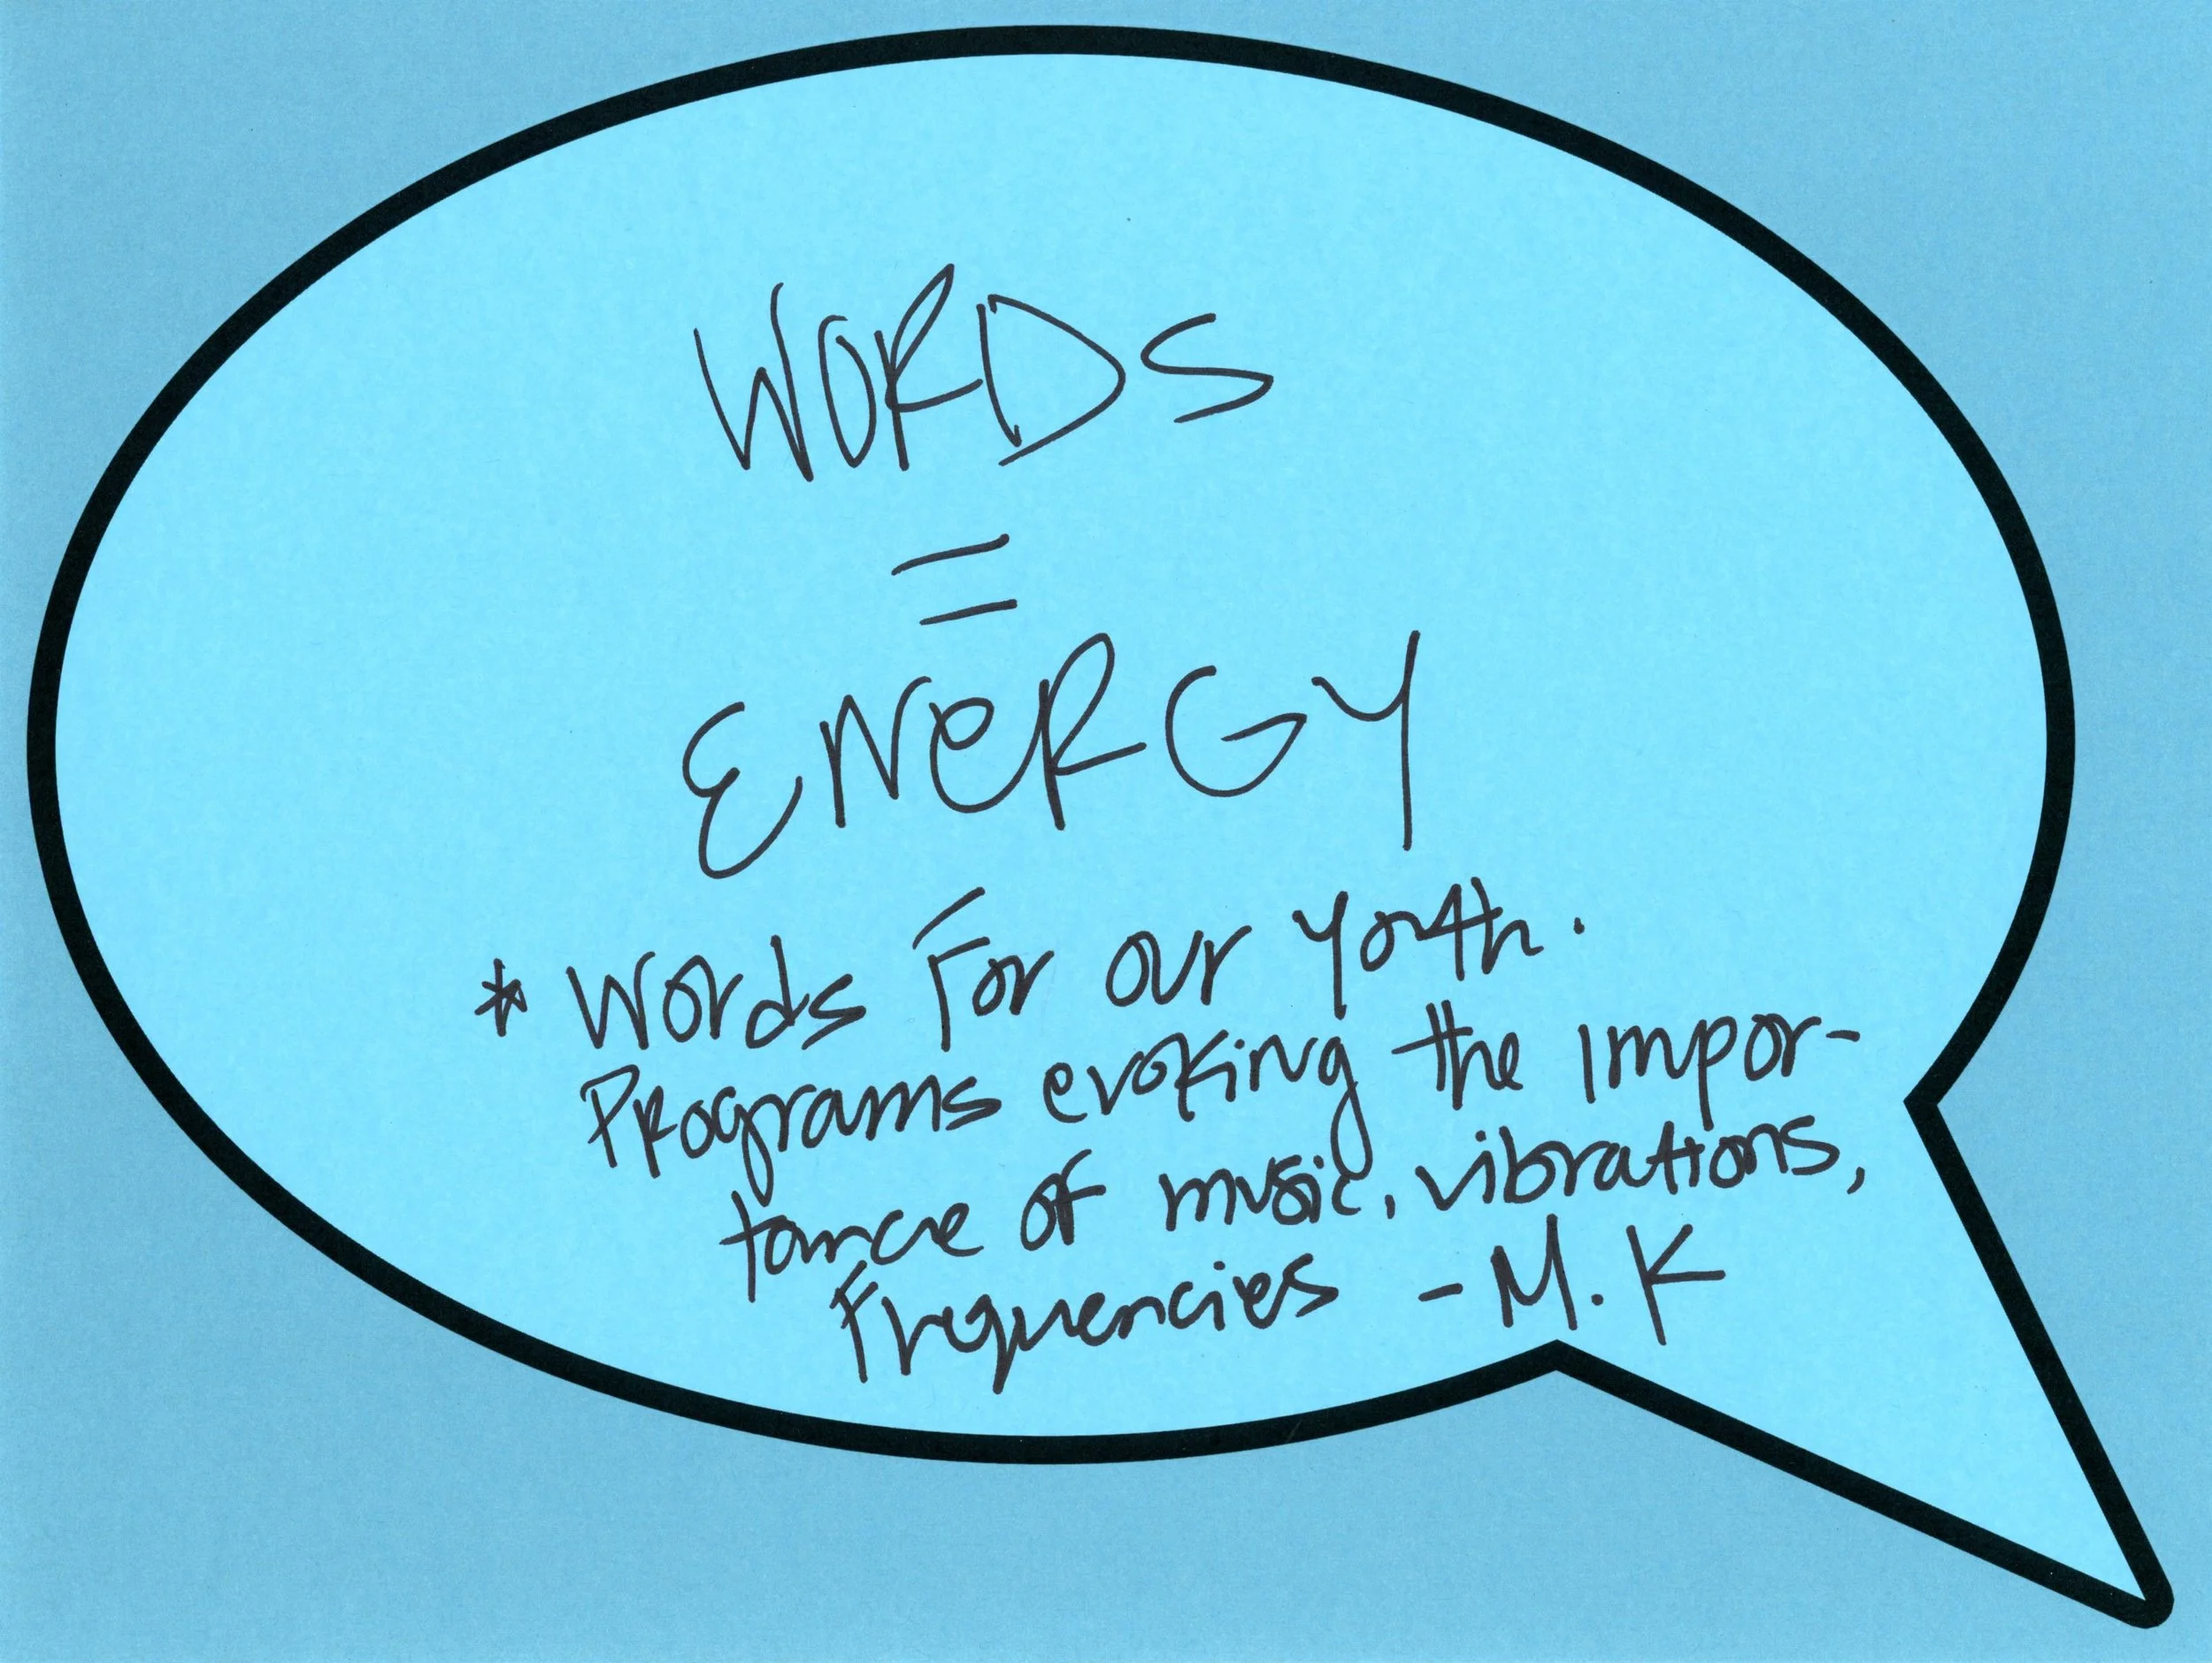 WORDS
=
ENERGY
* Words For our Youth.
Programs evoking the impor-
tance of music, vibrations,
Frequencies - M. K